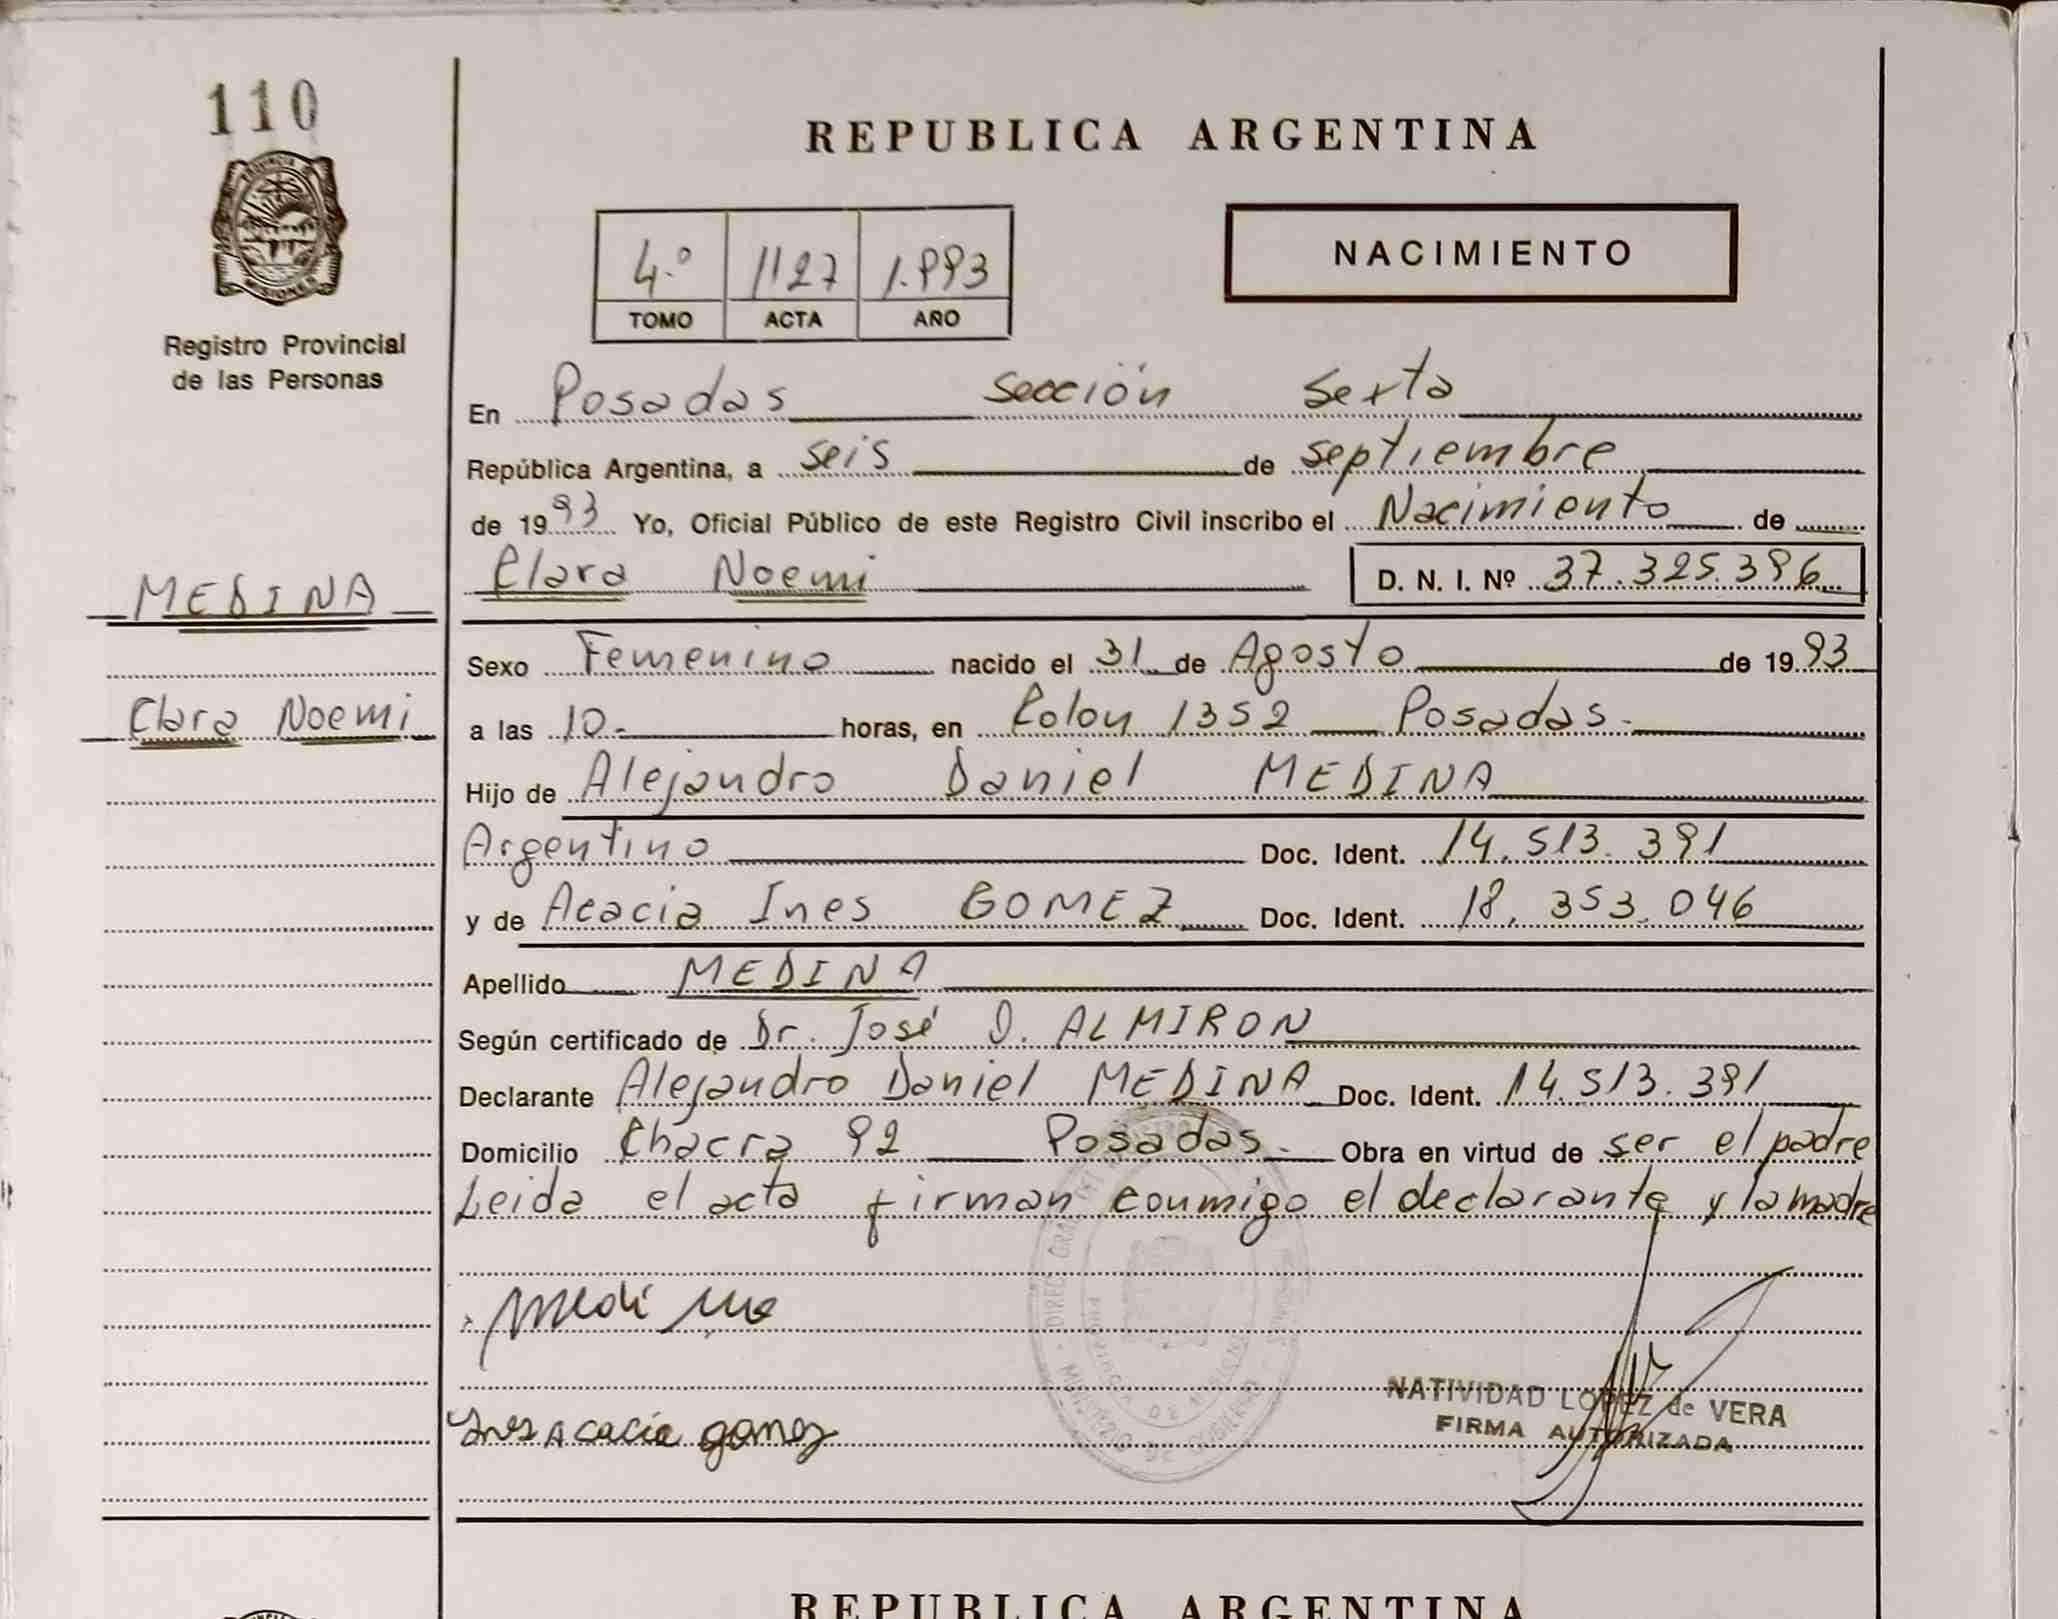 110
PROVINCIA DE
MISIONES
Registro Provincial
de las Personas
REPUBLICA ARGENTINA
4.º 1127 1.993
TOMO ACTA AÑO
NACIMIENTO
En Posadas sección sexta
República Argentina, a seis de septiembre
de 1993 Yo, Oficial Público de este Registro Civil inscribo el Nacimiento de
MEDINA
Clara Noemi D. N. I. Nº 37.325.396
Sexo Femenino nacido el 31 de Agosto de 1993
Clara Noemi
a las 10.- horas, en Colon 1352 Posadas.-
Hijo de Alejandro Daniel MEDINA
Argentino Doc. Ident. 14.513.391
y de Acacia Ines GOMEZ Doc. Ident. 18.353.046
Apellido MEDINA
Según certificado de Dr. José D. ALMIRON
Declarante Alejandro Daniel MEDINA Doc. Ident. 14.513.391
Domicilio Chacra 92 Posadas.- Obra en virtud de ser el padre
Leida el acta firman conmigo el declarante y la madre
Medina
NATIVIDAD LOPEZ de VERA
FIRMA AUTORIZADA
Ines Acacia gomez
REPUBLICA ARGENTINA